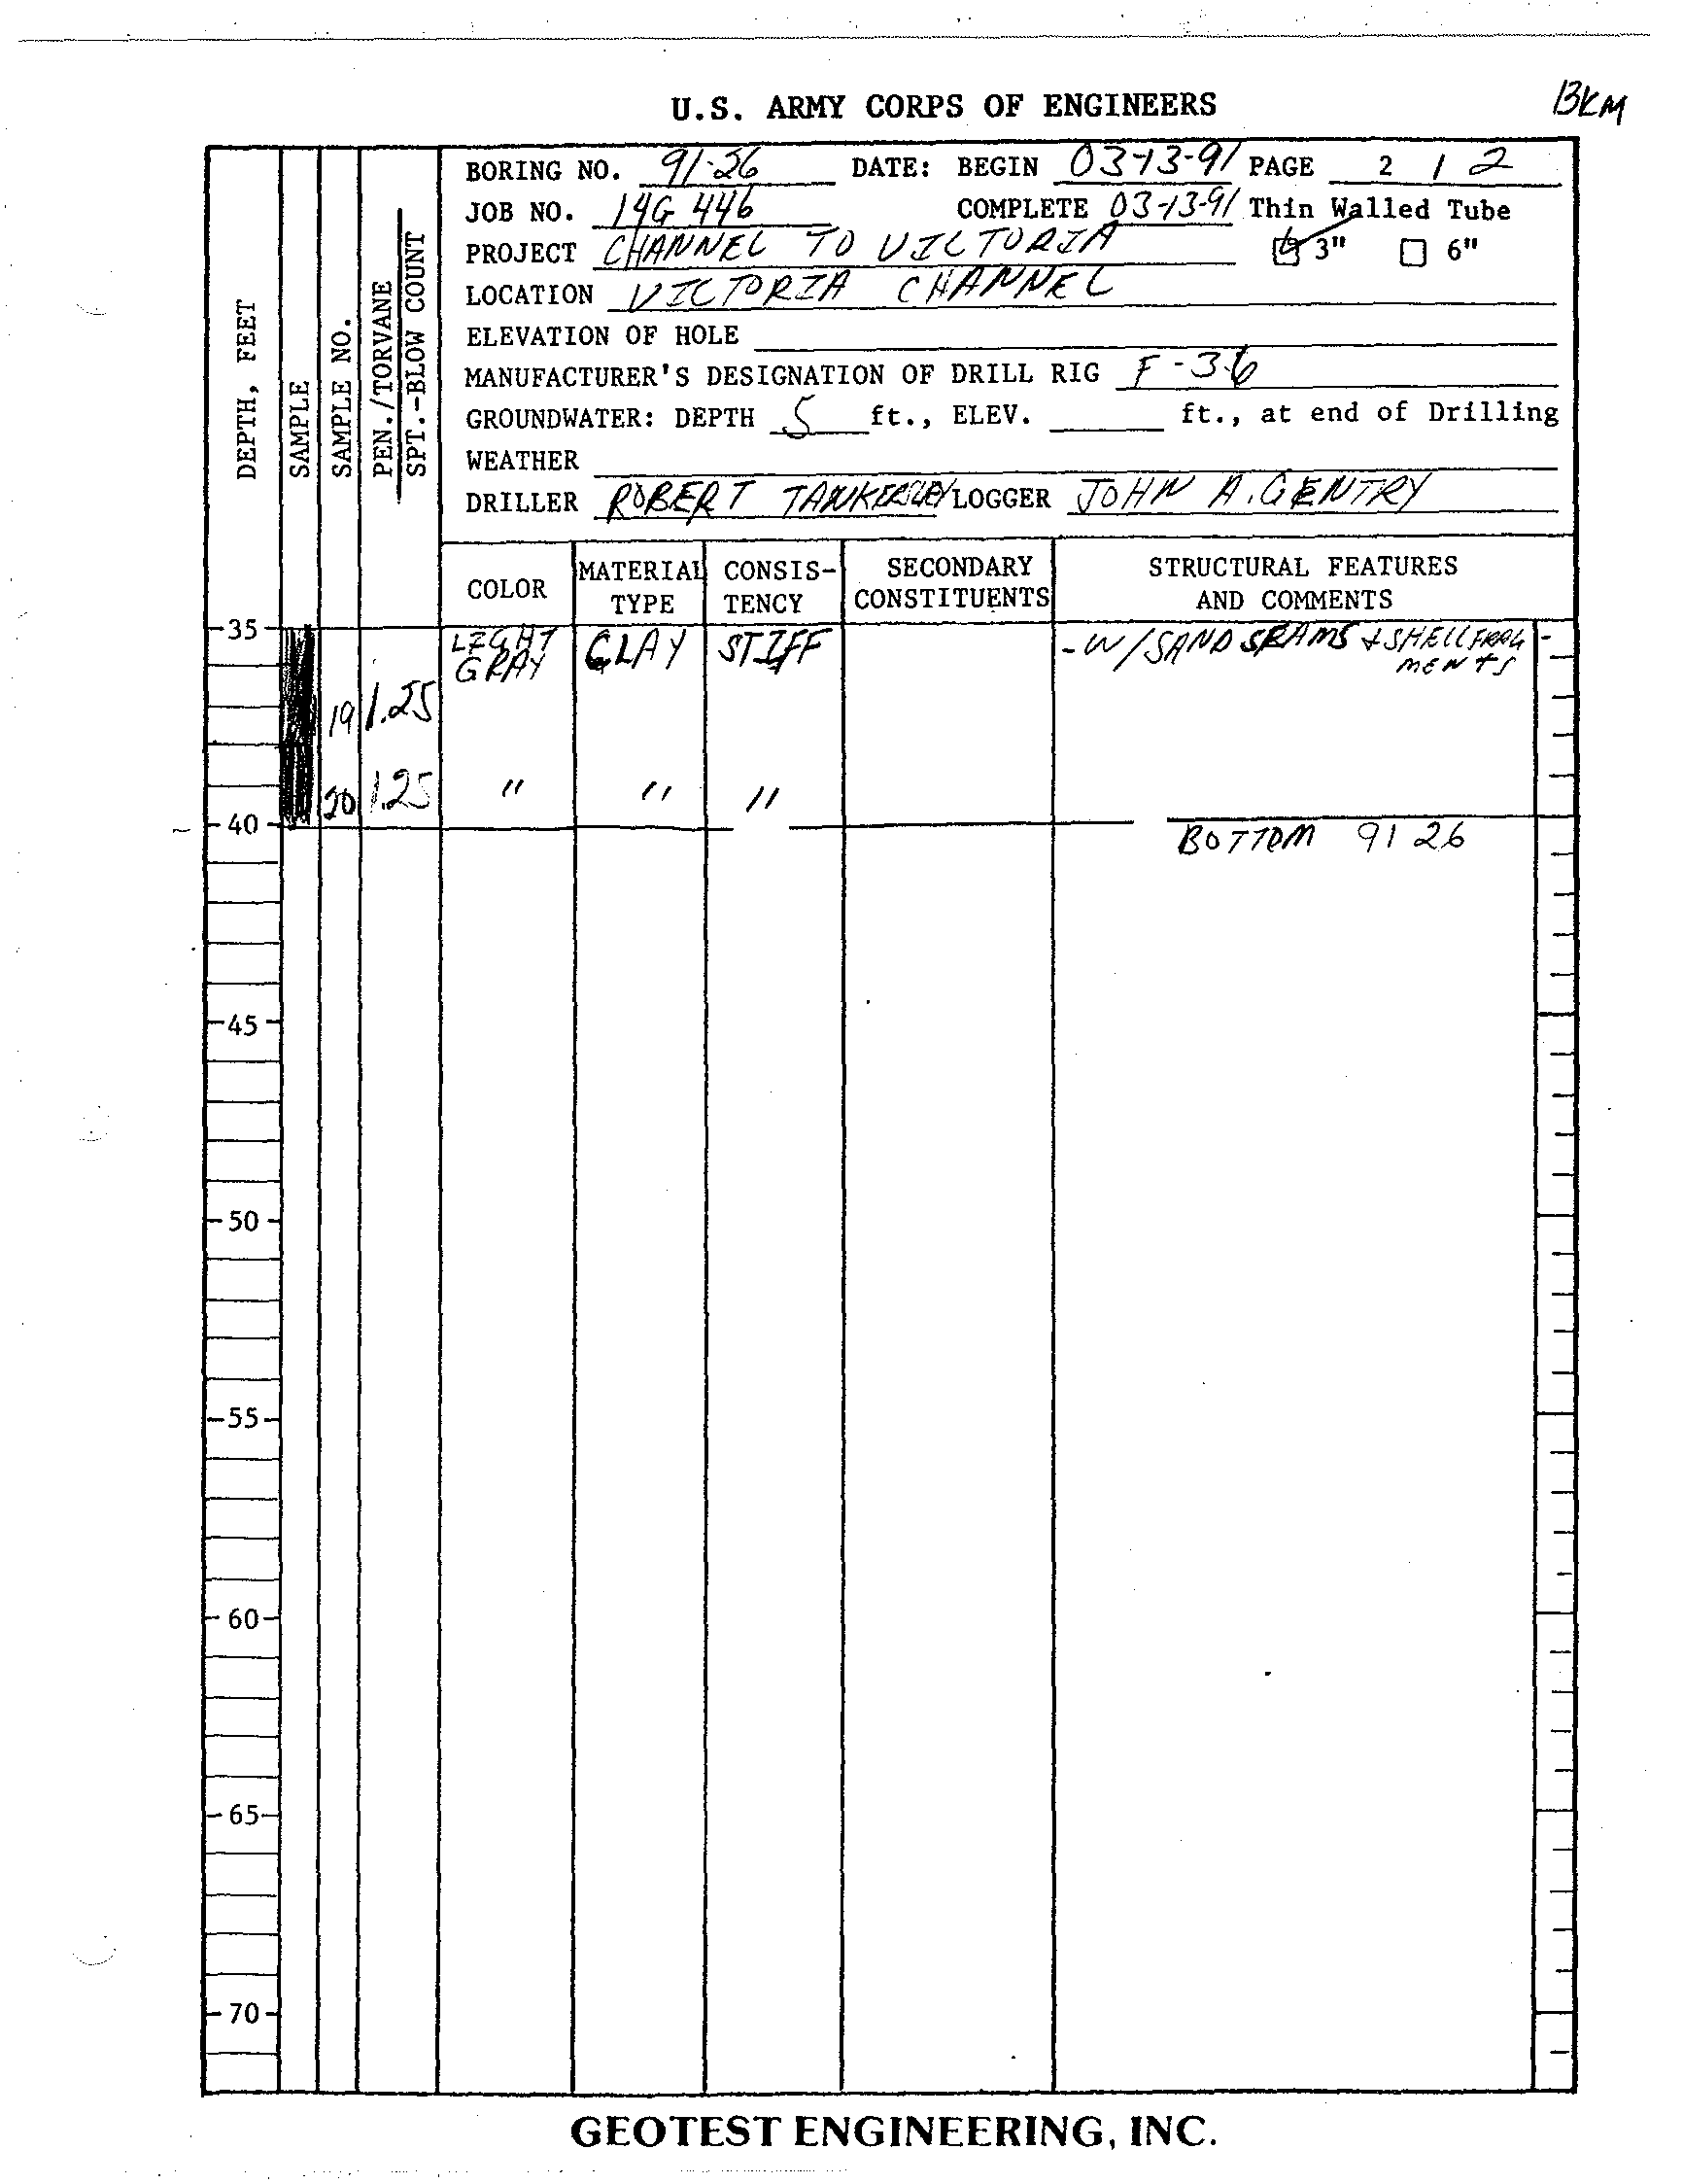 U.S. ARMY CORPS OF ENGINEERS
BKM
BORING NO. 91-26 DATE: BEGIN 03-13-91 PAGE 2 / 2
JOB NO. 14G 446 COMPLETE 03-13-91 Thin Walled Tube
PROJECT CHANNEL TO VICTORIA 3" 6"
LOCATION VICTORIA CHANNEL
ELEVATION OF HOLE
MANUFACTURER'S DESIGNATION OF DRILL RIG F-36
GROUNDWATER: DEPTH 5 ft., ELEV. ft., at end of Drilling
WEATHER
DRILLER ROBERT TANKERSLEY LOGGER JOHN A. GENTRY
DEPTH, FEET
SAMPLE
SAMPLE NO.
PEN./TORVANE
SPT.-BLOW COUNT
COLOR
MATERIAL TYPE
CONSIS-TENCY
SECONDARY CONSTITUENTS
STRUCTURAL FEATURES AND COMMENTS
35 LIGHT GRAY CLAY STIFF -W/SAND SEAMS & SHELL FRAG-
MENTS
19 1.25
20 1.25 " " "
40
BOTTOM 91 26
45
50
55
60
65
70
GEOTEST ENGINEERING, INC.